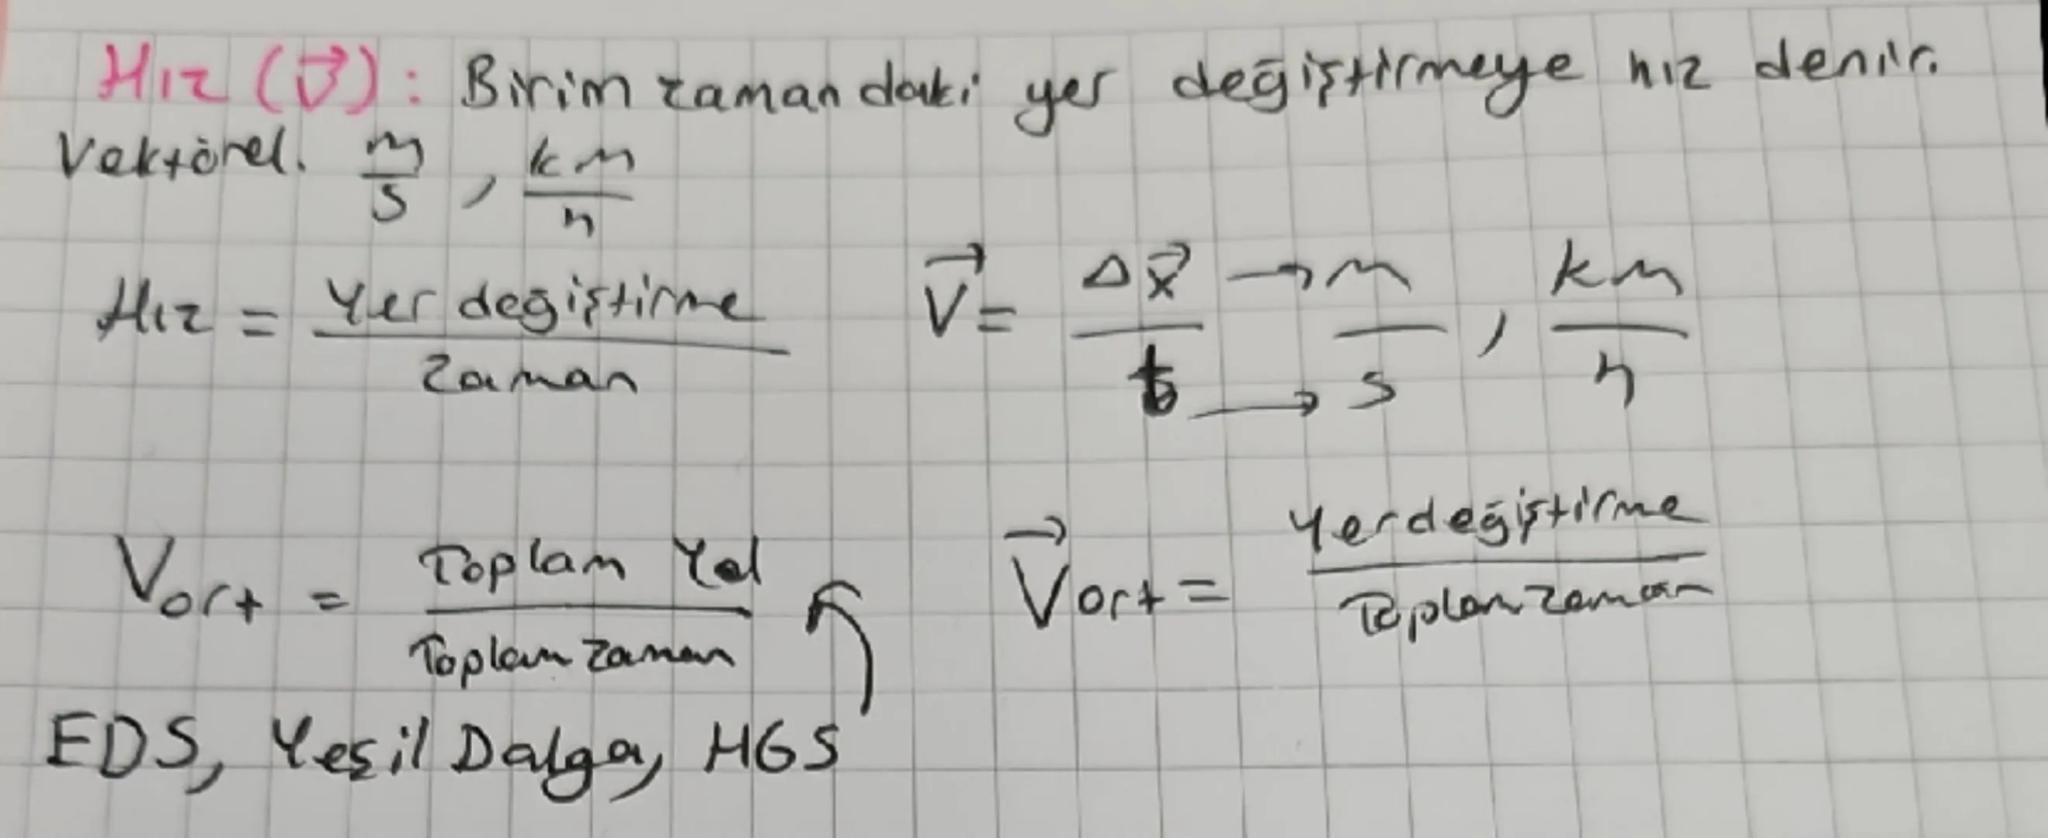 Hız (V⃗): Birim zamandaki yer değiştirmeye hız denir.
Vektörel. m/s, km/h
Hız = Yer değiştirme / Zaman    V⃗ = Δx⃗ / t → m / s, km / h
Vort = Toplam Yol / Toplam zaman    V⃗ort = Yerdeğiştirme / Toplam zaman
EDS, Yeşil Dalga, HGS